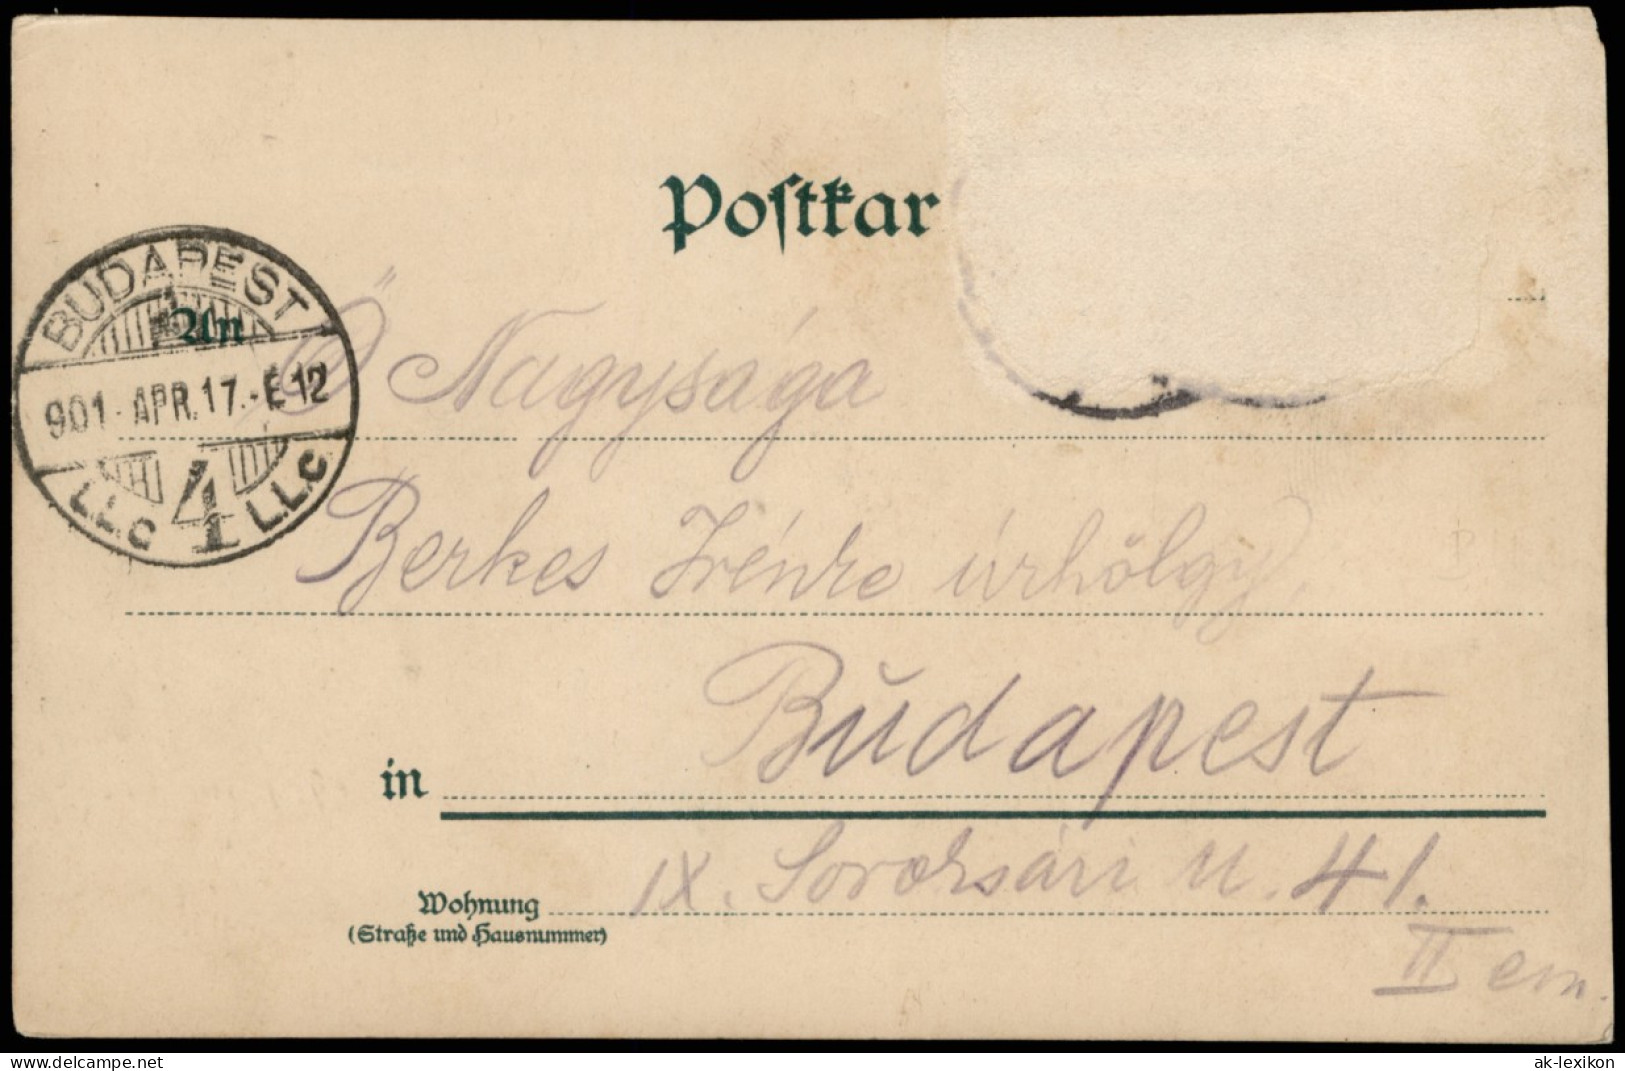 Postkar
BUDAPEST
901. APR. 17. - E 12
L.L.C 4 L.L.C
An
Ő Nagysága
Berkes Irénke úrhölgy,
in Budapest
Wohnung IX. Soroksári u. 41.
(Straße und Hausnummer)
II em.
www.delcampe.net
ak-lexikon